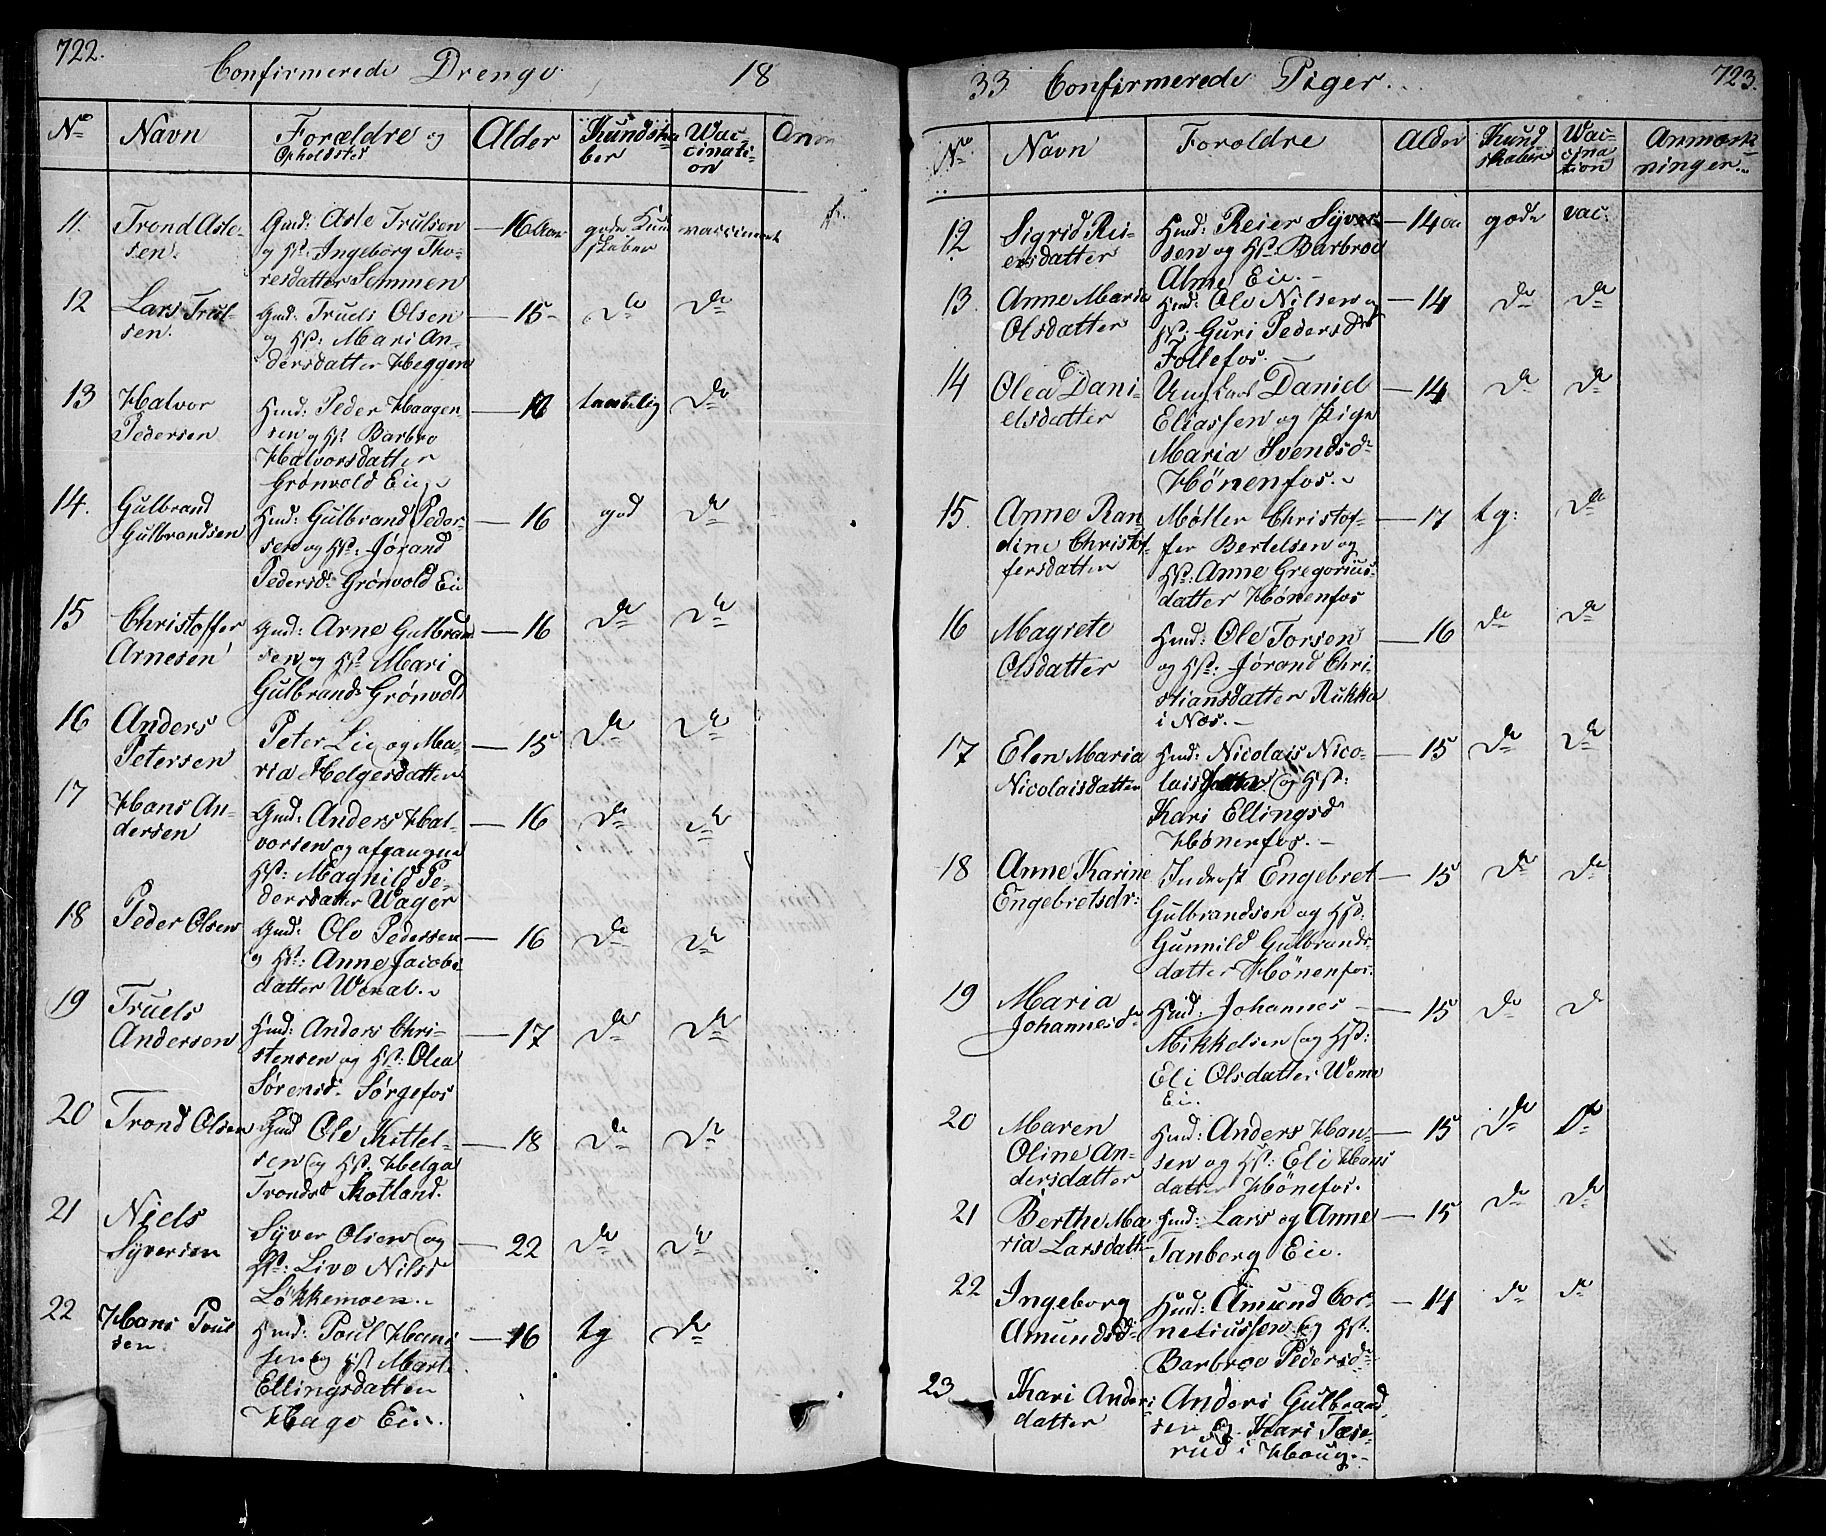 722.
Confirmerede Drenge 18
No Navn Forældre og Opholdsted Alder Kundskaber Vaccination Anm
11. Trond Asle-
sen. Gmd: Asle Trulsen
og Hst: Ingeborg Tho-
resdatter Semmen — 16 Aar gode Kund
skaber vaccineret
12 Lars Trul-
sen. Gmd: Truels Olsen
og Hst: Mari An-
dersdatter Heggen — 15 - do do
13 Halvor
Pedersen Hmd: Peder Haagen-
sen og Hst Barbro
Halvorsdatter
Grønvold Eie — 18 taalelig do
14. Gulbrand
Gulbrandsen Hmd: Gulbrand Peder-
sen og Hst: Jørand
Pedersd: Grønvold Eie — 16 god do
15 Christoffer
Arnesen Gmd: Arne Gulbrand
sen og Hst Mari
Gulbrands Grønvold — 16 do do
16 Anders
Petersen Peter Lie og Ma-
ria Helgesdatter — 15 do do
17 Hans An-
dersen Gmd: Anders Hal-
vorsen og afgangne
Hst: Magnild Pe-
dersdatter Wager — 16 do do
18 Peder Olsen Gmd: Ole Pedersen
og Hst: Anne Jacobs-
datter — 16 do do
19 Truels
Andersen Hmd: Anders Chri-
stensen og Hst: Olea
Sørensd: Sørgefos — 17 do do
20 Trond Olsen Gmd Ole Kittel-
sen og Hst. Helga
Trondsd Skotland. — 18 do do
21 Niels
Syversen Syver Olsen og
Hst: Live Nilsd
Løkkemoen. — 22 do do
22 Hans Poul
sen Hmd: Poul Hans
sen og Hst Marte
Ellingsdatter
Hage Eie. — 16 tg do
33 Confirmerede Piger. 723.
No Navn Foroldre Alder Kund
skaber Vac-
cina
tion Anmærk
ninger
12 Sigrid Rei-
ersdatter Hmd: Reier Syver-
sen og Hst Barbroe
Alme Eie. — 14 aar gode vac:
13 Anne Maria
Olsdatter Hmd: Ole Nilsen og
Hst: Guri Pedersdr
Follefos. — 14 do do
14 Olea Dani-
elsdatter Ung Karl Daniel
Eliassen og Pige
Maria Svendsdr
Hönenfos. — 14 do do
15. Anne Ran-
dine Christof-
fersdatter Møller Christof-
fer Bertelsen og
Hst: Anne Gregorius-
datter Hönenfos — 17 tg: do
16 Magrete
Olsdatter Hmd: Ole Torsen
og Hst: Jørand Chri-
stiansdatter Rukke
i Næs. — 16 do do
17 Elen Maria
Nicolaisdatter Hmd: Nicolais Nico-
lais og Hst:
Kari Ellingsdr
Hönenfos. — 15 do do
18 Anne Karine
Engebretsdr: Inderst Engebret
Gulbrandsen og Hst:
Gunnild Gulbrands-
datter Hönenfos. — 15 do do
19 Maria
Johannesdr Hmd: Johannes
Mikkelsen og Hst:
Eli Olsdatter Weme
Ei. — 15 do do
20 Maren
Oline An-
dersdatter Hmd: Anders Han-
sen og Hst: Eli Hans
datter Hönefos. — 15 do do
21 Berthe Ma
ria Larsdatter Hmd: Lars og Anne
Tanberg Eie. — 15 do do
22 Ingeborg
Amundsdr Hmd: Amund Cor-
neliussen og Hst.
Barbroe Pedersdr — 14 do do
23 Kari Anders
datter Anders Gulbrand
sen og Kari Tæse-
rud i Houg.